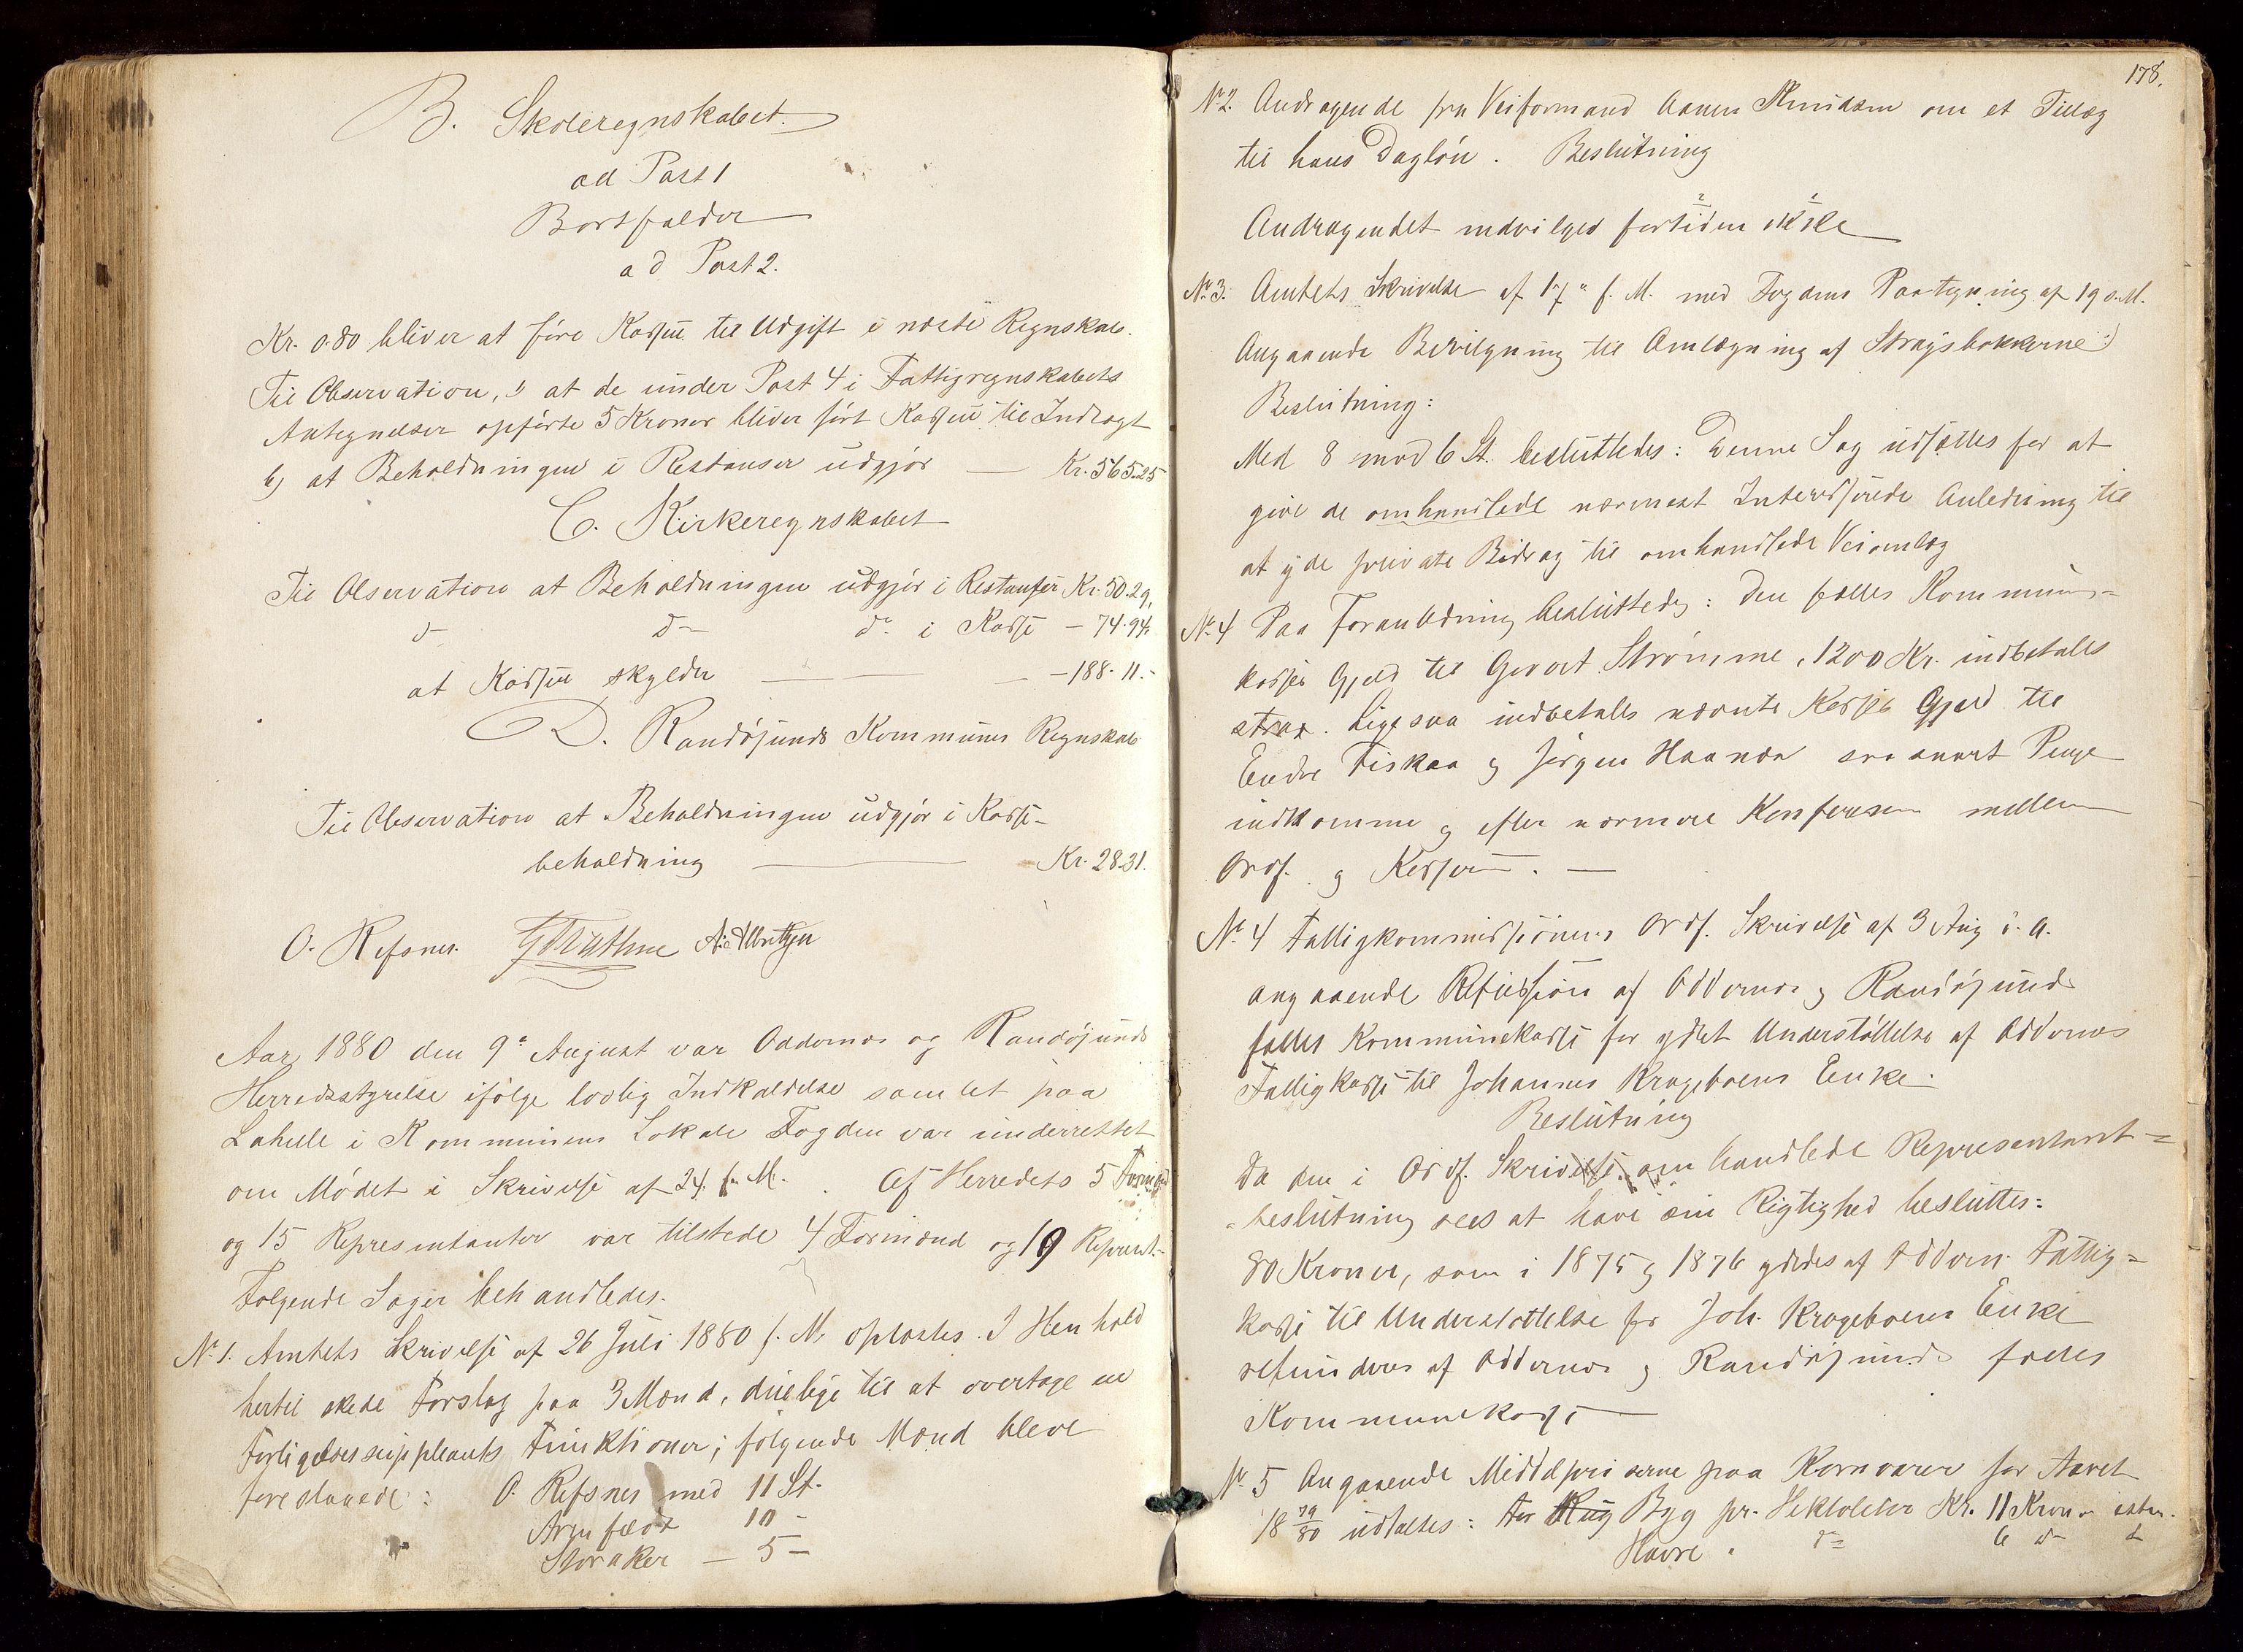 B. Skoleregnskabet.
ad Post 1
Bortfalder
ad Post 2.
Kr. 0.80 bliver at före Kassen til Udgift i næste Regnskab.
Til Observation, a) at de under Post 4 i Fattigregnskabets
Antegnelser opførte 5 Kroner bliver ført Kassen til Indtægt
b) at Beholdningen i Restanser udgjør — Kr. 565.25
C. Kirkeregnskabet
Til Observation at Beholdningen udgjør i Restanser Kr. 50.29,
d- d- do i Kasse - 74.94.
at Kassen skylder — — — 188.11.-
D. Randøsunds Kommunes Regnskab
Til Observation at Beholdningen udgjør i Kasse-
beholdning — Kr. 28.31.
O. Refsnes.
Aar 1880 den 9de August var Oddernes og Randøsunds
Herredsstyrelse ifølge lovlig Indkaldelse samlet paa
Lahelle i Kommunens Lokale Fogden var underrettet
om Mødet i Skrivelse af 24 f. M. Af Herredets 5 Formænd
og 15 Representanter var tilstede 4 Formænd og 10 Represent.-
Følgende Sager behandledes.
No 1. Amtets Skrivelse af 26 Juli 1880 f. M. oplæstes. I Henhold
hertil skede Forslag paa 3 Mænd, duelige til at overtage en
Forligelsessuppleants Funktioner; følgende Mænd bleve
foreslaaede: O. Refsnes med 11 St.
Arenfeldt 10 -
Storaker — 5 —
178.
No 2. Andragende fra Veiformand Aanen Knudsen om et Tillæg
til hans Dagløn. Beslutning
Andragendet indvilges fortiden ikke
No 3. Amtets Skrivelse af 17de f. M. med Fogdens Paategning af 19 s. M.
Angaaende Bevilgning til Omlægning af Straysbakkerne:)
Beslutning:
Med 8 mod 6 St. besluttedes: Denne Sag udsættes for at
give de omhandlede nærmest Interesserede Anledning til
at yde private Bidrag til omhandlede Veiomlæg
No 4 Paa Foranledning besluttedes: Den fælles Kommune-
kasses Gjeld til Govert Strømme, 1200 Kr. indbetales
strax. Ligesaa indbetales nævnte Kasses Gjeld til
Endre Fiskaa og Jørgen Haanæs saasnart Penge
indkomme og efter nærmere Konferense mellem
Ordf. og Kasserer. —
No 4 Fattigkommissionens Ordf. Skrivelse af 3 Aug d. A.
angaaende Refusjon af Oddernes og Randøsunds
fælles Kommunekasse for ydet Understøttelse af Oddernes
Fattigkasse til Johannes Krageboens Enke.
Beslutning
Da den i Ordf. Skrivelse omhandlede Representant=
=beslutning sees at have sin Rigtighed besluttes:
80 Kroner, som i 1875 og 1876 ydedes af Oddern. Fattig=
kasse til Understøttelse for Joh. Krageboens Enke
refunderes af Oddernes og Randøsunds fælles
Kommunekasse —
No 5 Angaaende Middelpriserne paa Kornvarer for Aaret
18 79/80 udtaltes: for Rug Byg pr. Hektoliter Kr. 11 Kroner
Havre " d= 6 d-